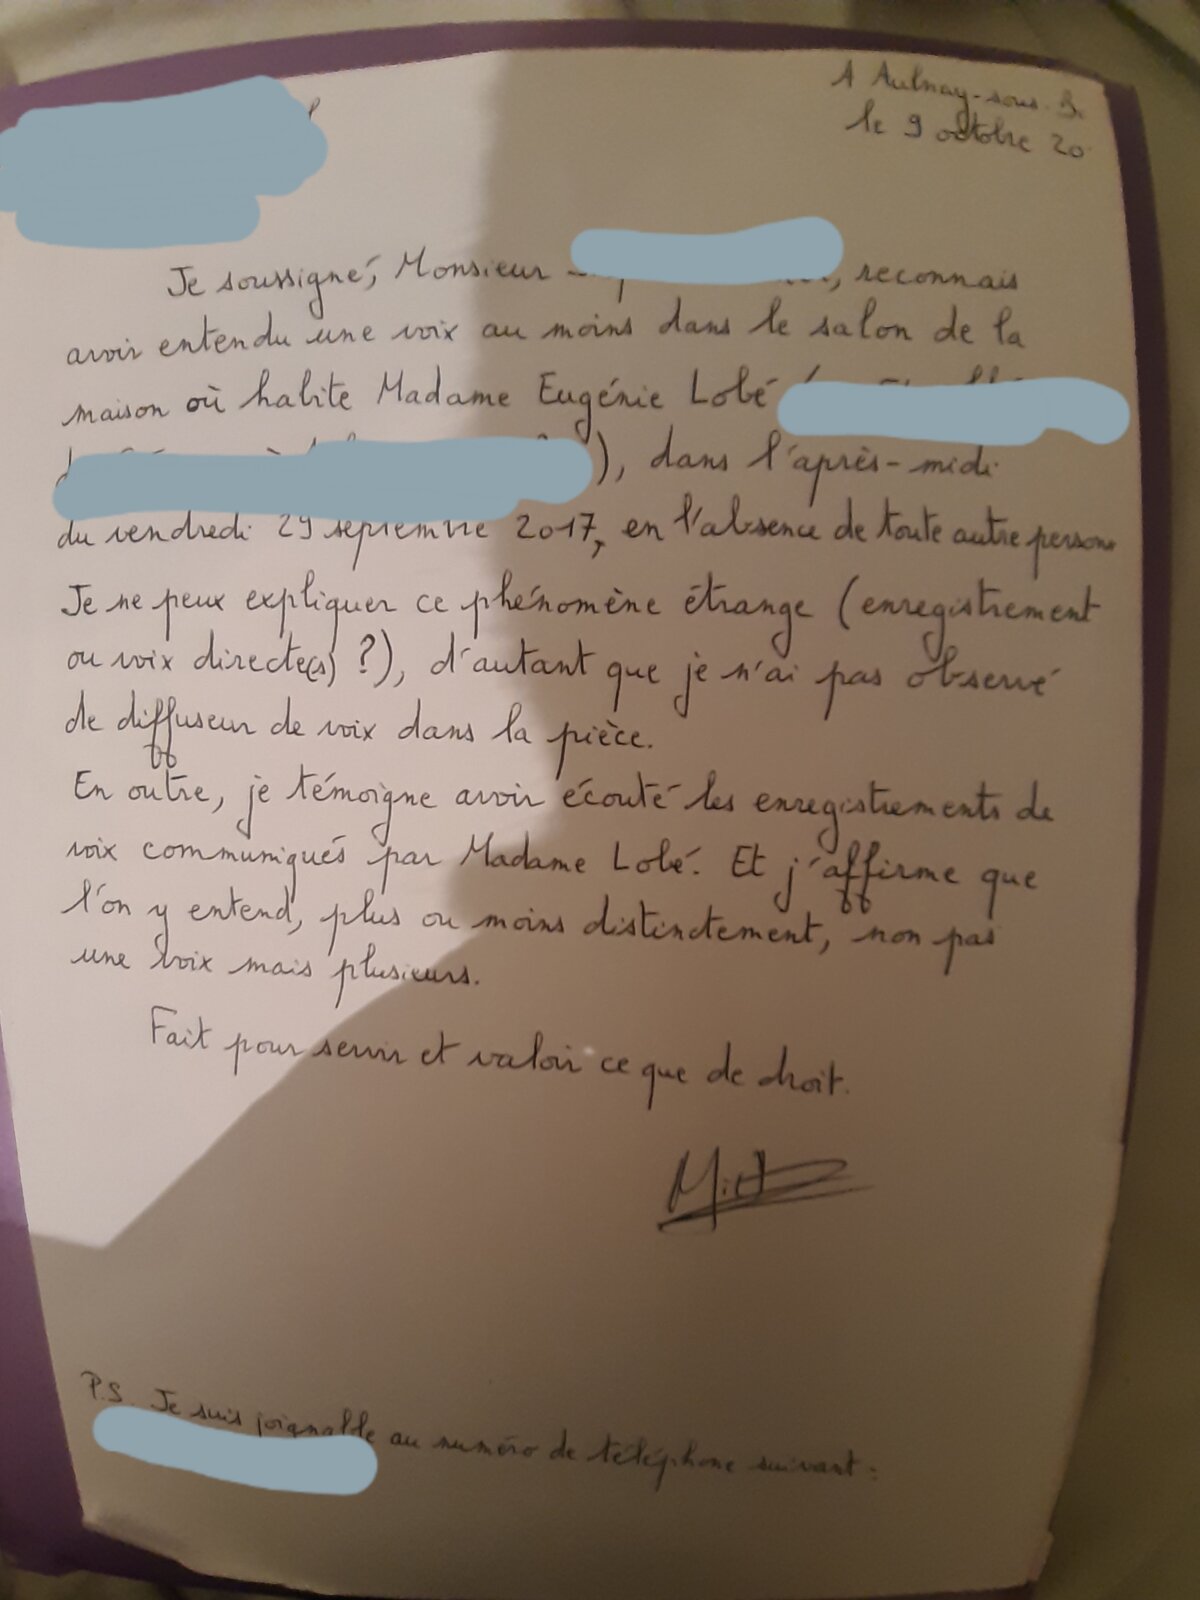 A Aulnay-sous-
le 9 octobre 20
Je soussigné, Monsieur , reconnais
avoir entendu une voix au moins dans le salon de la
maison où habite Madame Eugénie Lobé
), dans l'après-midi
du vendredi 29 septembre 2017, en l'absence de toute autre person
Je ne peux expliquer ce phénomène étrange (enregistrement
ou voix directe(s) ?), d'autant que je n'ai pas observé
de diffuseur de voix dans la pièce.
En outre, je témoigne avoir écouté les enregistrements de
voix communiqués par Madame Lobé. Et j'affirme que
l'on y entend, plus ou moins distinctement, non pas
une voix mais plusieurs.
Fait pour servir et valoir ce que de droit.
P.S. Je suis joignable au numéro de téléphone suivant :